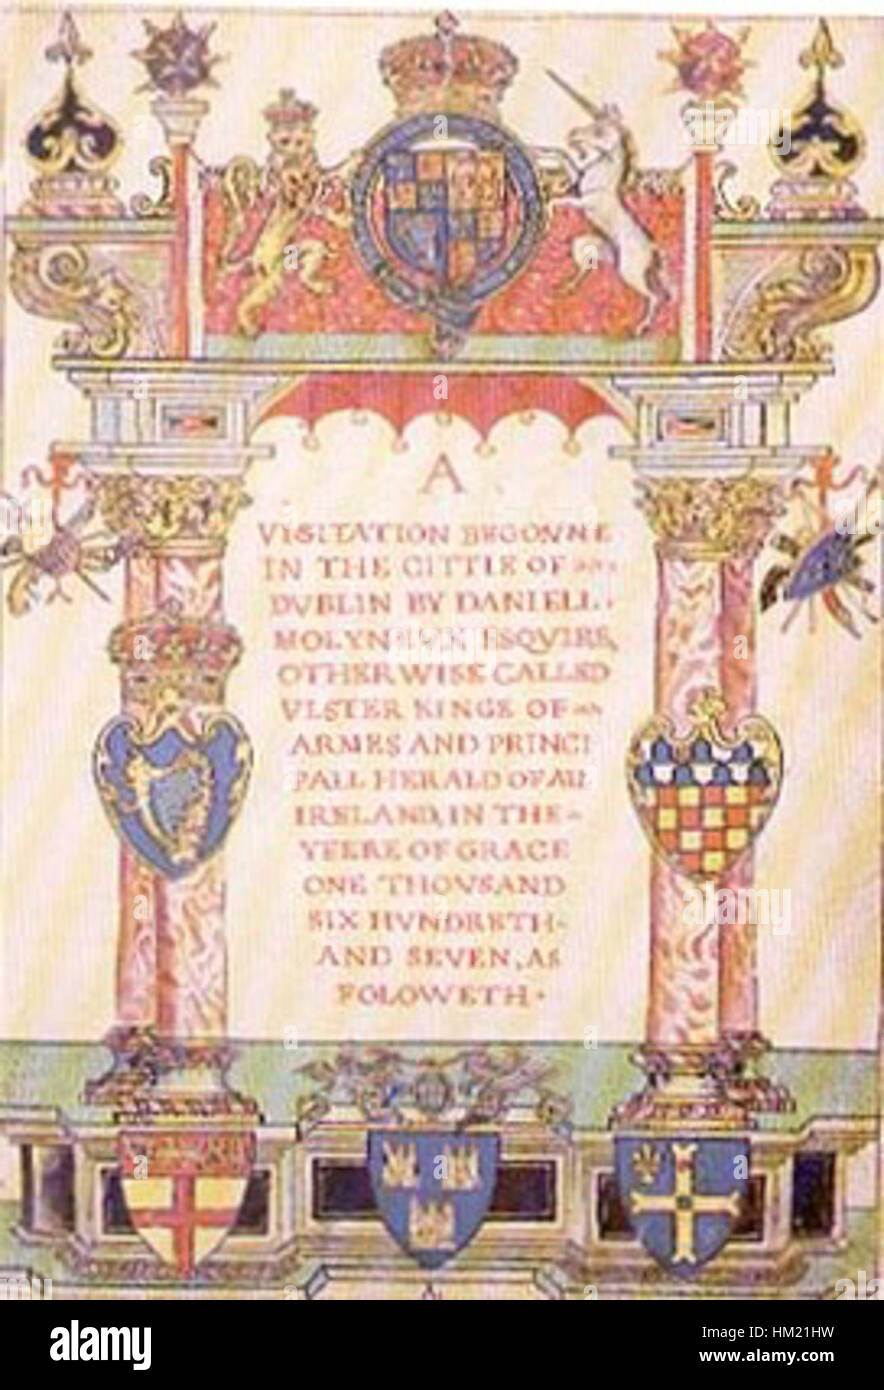 A
VISITATION BEGOVNE
IN THE CITTIE OF
DVBLIN BY DANIELL
ESQVIRE,
OTHERWISE CALLED
VLSTER KINGE OF
ARMES AND PRINCI
PALL HERALD OF ALL
IRELAND, IN THE
YEERE OF GRACE
ONE THOVSAND
SIX HVNDRETH
AND SEVEN, AS
FOLOWETH
alamy
Image ID: HM21HW
www.alamy.com